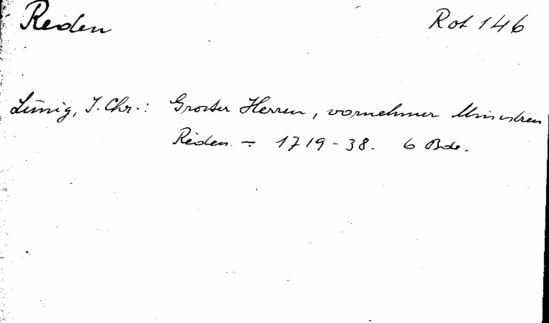 Reden
Rot 146
Lünig, J. Chr.: Grosser Herren, vornehmer Ministren
Reden. - 1719-38. 6 Bde.